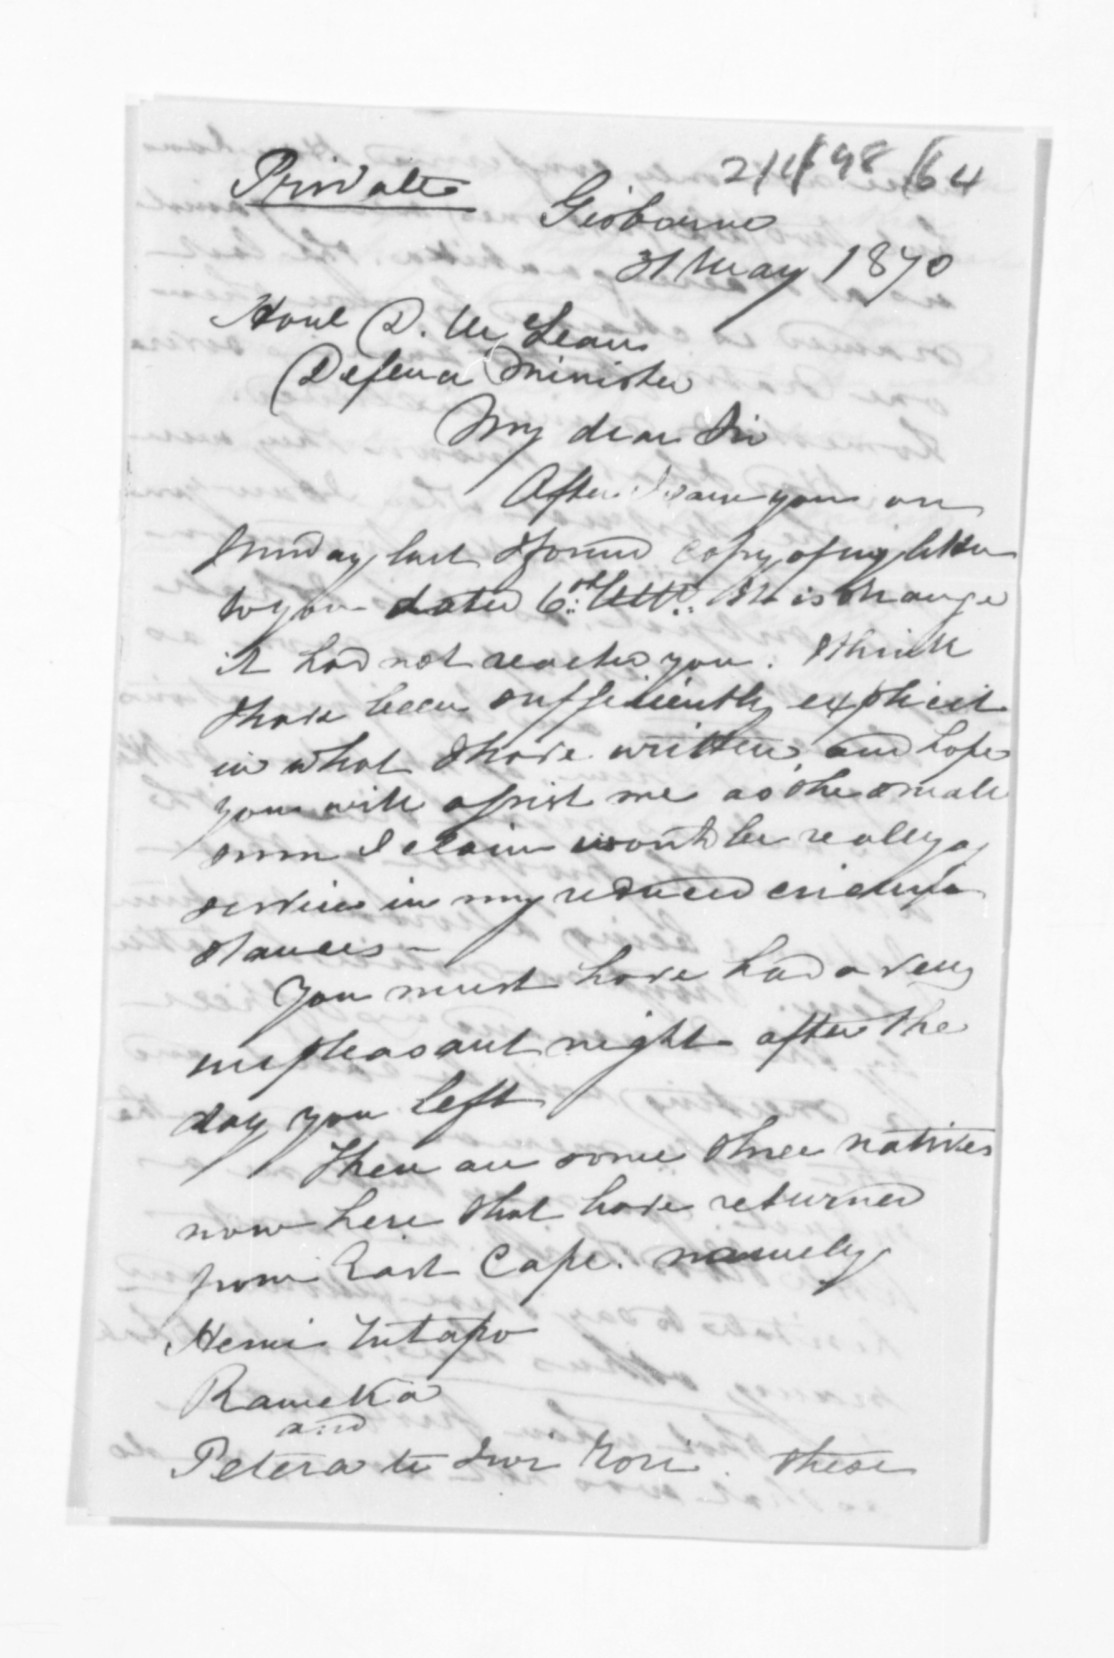 Private
Gisborne
31 May 1870
Honl D. McLean
Defence Minister
My dear Sir
After I saw you on
Sunday last I found copy of my letter
to you dated 6th Ulto. It is strange
it had not reached you. I think
I have been sufficiently explicit
in what I have written, and hope
you will assist me as the small
sum I claim would be really of
service in my reduced circum
stances -
You must have had a very
unpleasant night after the
day you left
There are some three natives
now here that have returned
from East Cape. namely
Hemi Tutapo
Rameka
and
Petera te Iwi Kori. These